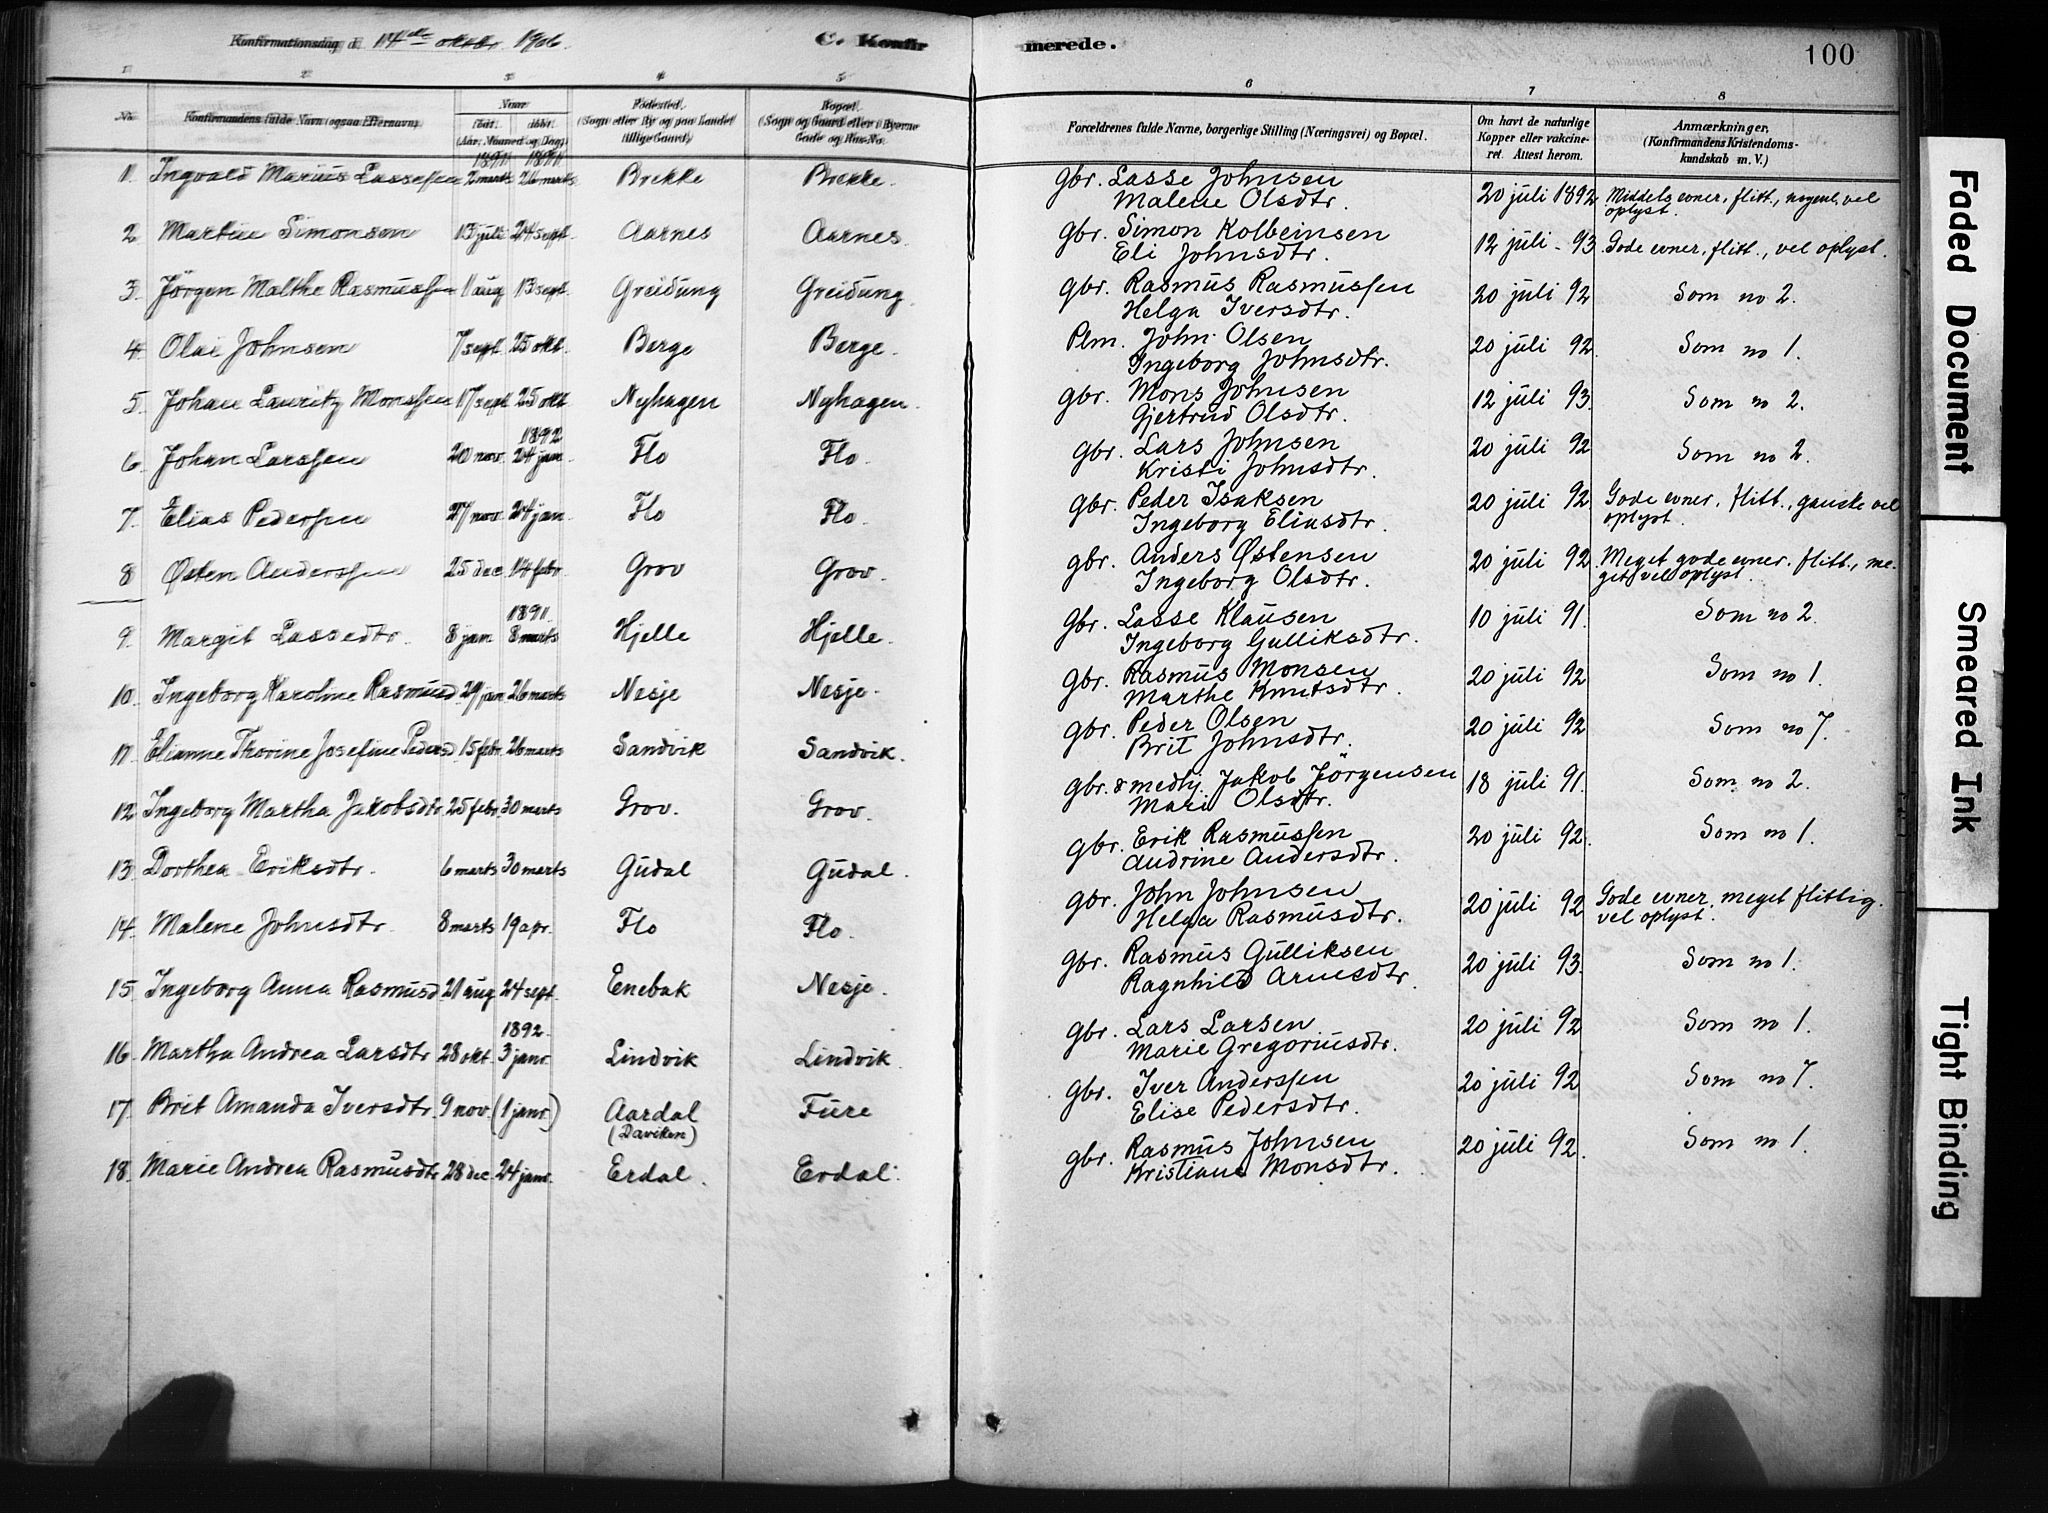 Konfirmationsdag d. 14de oktbr. 1906. C. Konfirmerede. 100
1 2 3 4 5 6 7 8
No. Konfirmandens fulde Navn (ogsaa Efternavn) Naar født. døbt. (Aar, Maaned og Dag) Fødested. (Sogn eller By og paa Landet tillige Gaard). Bopæl. (Sogn og Gaard eller i Byerne Gade og Hus-No. Forældrenes fulde Navne, borgerlige Stilling (Næringsvei) og Bopæl. Om havt de naturlige Kopper eller vakcineret. Attest herom. Anmærkninger. (Konfirmandens Kristendomskundskab m. V.)
1891 1891
1. Ingvald Marius Lassesen 2 marts 26 marts Brekke Brekke. gbr. Lasse Johnsen Malene Olsdtr. 20 juli 1892 Middels evner, flitt., nogenl. vel oplyst.
2. Martin Simonsen 13 juli 24 sept. Aarnes Aarnes. gbr. Simon Kolbeinsen Eli Johnsdtr. 12 juli - 93 Gode evner, flitt., vel oplyst.
3. Jörgen Malthe Rasmussen 1 aug 13 sept. Greidung Greidung. gbr. Rasmus Rasmussen Helga Iversdtr. 20 juli 92 Som no 2.
4. Olai Johnsen 7 sept. 25 okt. Berge Berge. Plm. John Olsen Ingeborg Johnsdtr. 20 juli 92. Som no 1.
5. Johan Lauritz Monssen 17 sept 25 okt Nyhagen Nyhagen. gbr. Mons Johnsen Gjertrud Olsdtr. 12 juli 93. Som no 2.
1892
6. Johan Larssen 20 nov. 24 jan. Flo Flo. gbr. Lars Johnsen Kristi Johnsdtr. 20 juli 92 Som no 2.
7. Elias Pedersen 27 nov. 24 jan. Flo Flo. gbr. Peder Isaksen Ingeborg Eliasdtr. 20 juli 92 Gode evner, flitt., ganske vel oplyst.
8 Østen Anderssen 25 dec. 14 febr. Grov Grov. gbr. Anders Østensen Ingeborg Olsdtr. 20 juli 92. Meget gode evner, flitt., meget vel oplyst.
1891.
9. Margit Lassedtr. 8 jan 8 marts Hjelle Hjelle. gbr. Lasse Klausen Ingeborg Gulliksdtr. 10 juli 91. Som no 2.
10. Ingeborg Karoline Rasmusd 29 jan 26 marts Nesje Nesje. gbr. Rasmus Monsen Marthe Knutsdtr. 20 juli 92 Som no 1.
11. Elianne Thorine Josefine Pedersd 15 febr. 26 marts Sandvik Sandvik. gbr. Peder Olsen Brit Johnsdtr. 20 juli 92 Som no 7.
12. Ingeborg Martha Jakobsdtr 25 febr. 30 marts Grov. Grov. gbr. & medhj. Jakob Jörgensen Mari Olsdtr. 18 juli 91. Som no 2.
13. Dorthea Eriksdtr. 6 marts 30 marts Gudal Gudal. gbr. Erik Rasmussen Andrine Andersdtr. 20 juli 92. Som no 1.
14. Malene Johnsdtr. 8 marts 19 apr. Flo Flo. gbr. John Johnsen Helga Rasmusdtr. 20 juli 92 Gode evner, meget flittig. vel oplyst.
15. Ingeborg Anna Rasmusd 21 aug 24 sept. Enebak Nesje. gbr. Rasmus Gulliksen Ragnhild Arnesdtr. 20 juli 93. Som no 1.
1892.
16. Martha Andrea Larsdtr 28 okt. 3 janr. Lindvik Lindvik. gbr. Lars Larsen Marie Gregoriusdtr. 20 juli 92 Som no 1.
17. Brit Amanda Iversdtr. 9 nov. (1 janr.) Aardal (Daviken) Füre gbr. Iver Anderssen Elise Pedersdtr. 20 juli 92 Som no 7.
18. Marie Andrea Rasmusdtr 28 dec. 24 janr. Erdal. Erdal. gbr. Rasmus Johnsen Kristiane Monsdtr. 20 juli 92. Som no 1.
Faded Document
Smeared Ink
Tight Binding